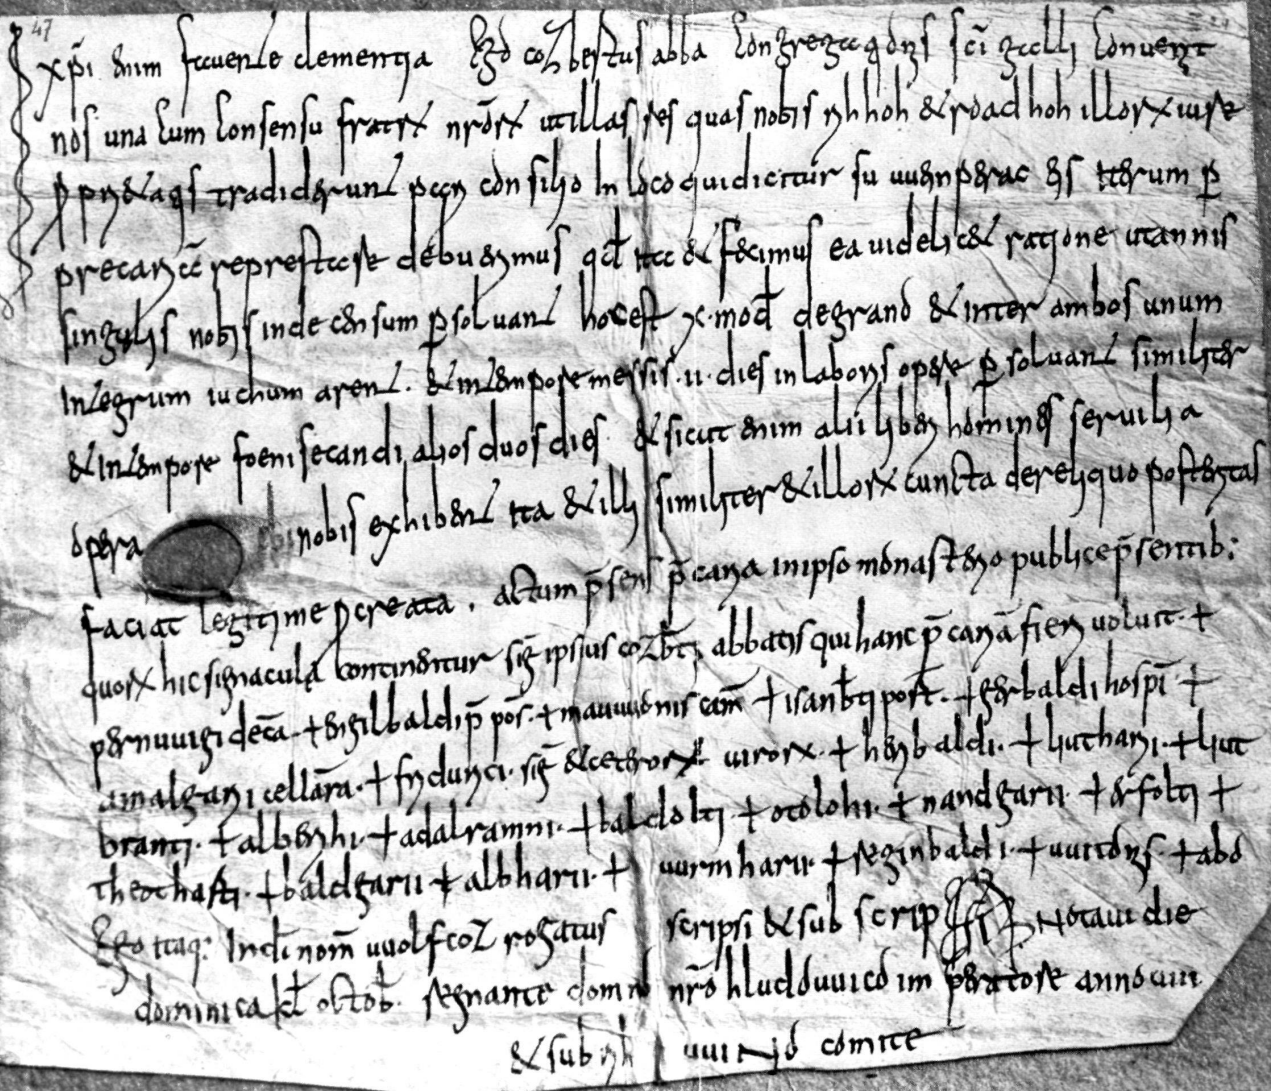 47
xp̄i enim favente clementia Ego cozbertus abba congregationis sc̄i galli Convenit
nos una cum consensu fratrx nr̄orx ut illas res quas nobis hhoh & roadhoh illorx iure
p̲ propri&atis tradiderunt pari consilio In loco qui dicitur su uuenperac eis iterum p̲
precariā represtare deberemus qd̄ ita & fecimus ea videlic& ratione ut annis
singulis nobis inde censum p̲solvant hoc est x. mod̄ de grano & inter ambos unum
Integrum iuchum arent. & In tempore messis .ii. dies in laboris opere p̲solvant similiter
& In tempore foeni secandi alios duos dies & sicut enim alii liberi homines servilia
opera nobis exhibent ita & illi similiter & illorx cuncta derelinquo posteritas
faciat legitime p̲creata. actum p̄sens p̄caria in ipso monasterio publice p̄sentib;
quorx hic signacula continentur siḡ ipsius cozb̄ti abbatis qui hanc p̄cariā fieri voluit. +
pernuuigi decā. + engilbaldi p̄pos̄. + mauuuonis cam̄ + isanb̄ti port̄. + gerbaldi hospit̄ +
amalgarii cellārā. + fridurici. siḡ & ceterorx virorx. + heribaldi. + liuthari. + liut
branti. + alberihi. + adalramni. + baldolti + otolohi. + nandgarii + erfolti +
theothasti. + baldgarii + albharii. + uurmharii. + reginbaldi. + uuitonis. + abo
Ego itaq: In dī nom̄ uuolfcoz rogatus scripsi & subscripsi Notavi die
dominica kl̄ octob̄. regnante domno nr̄o hludouuico imperatore anno viii
& sub comite